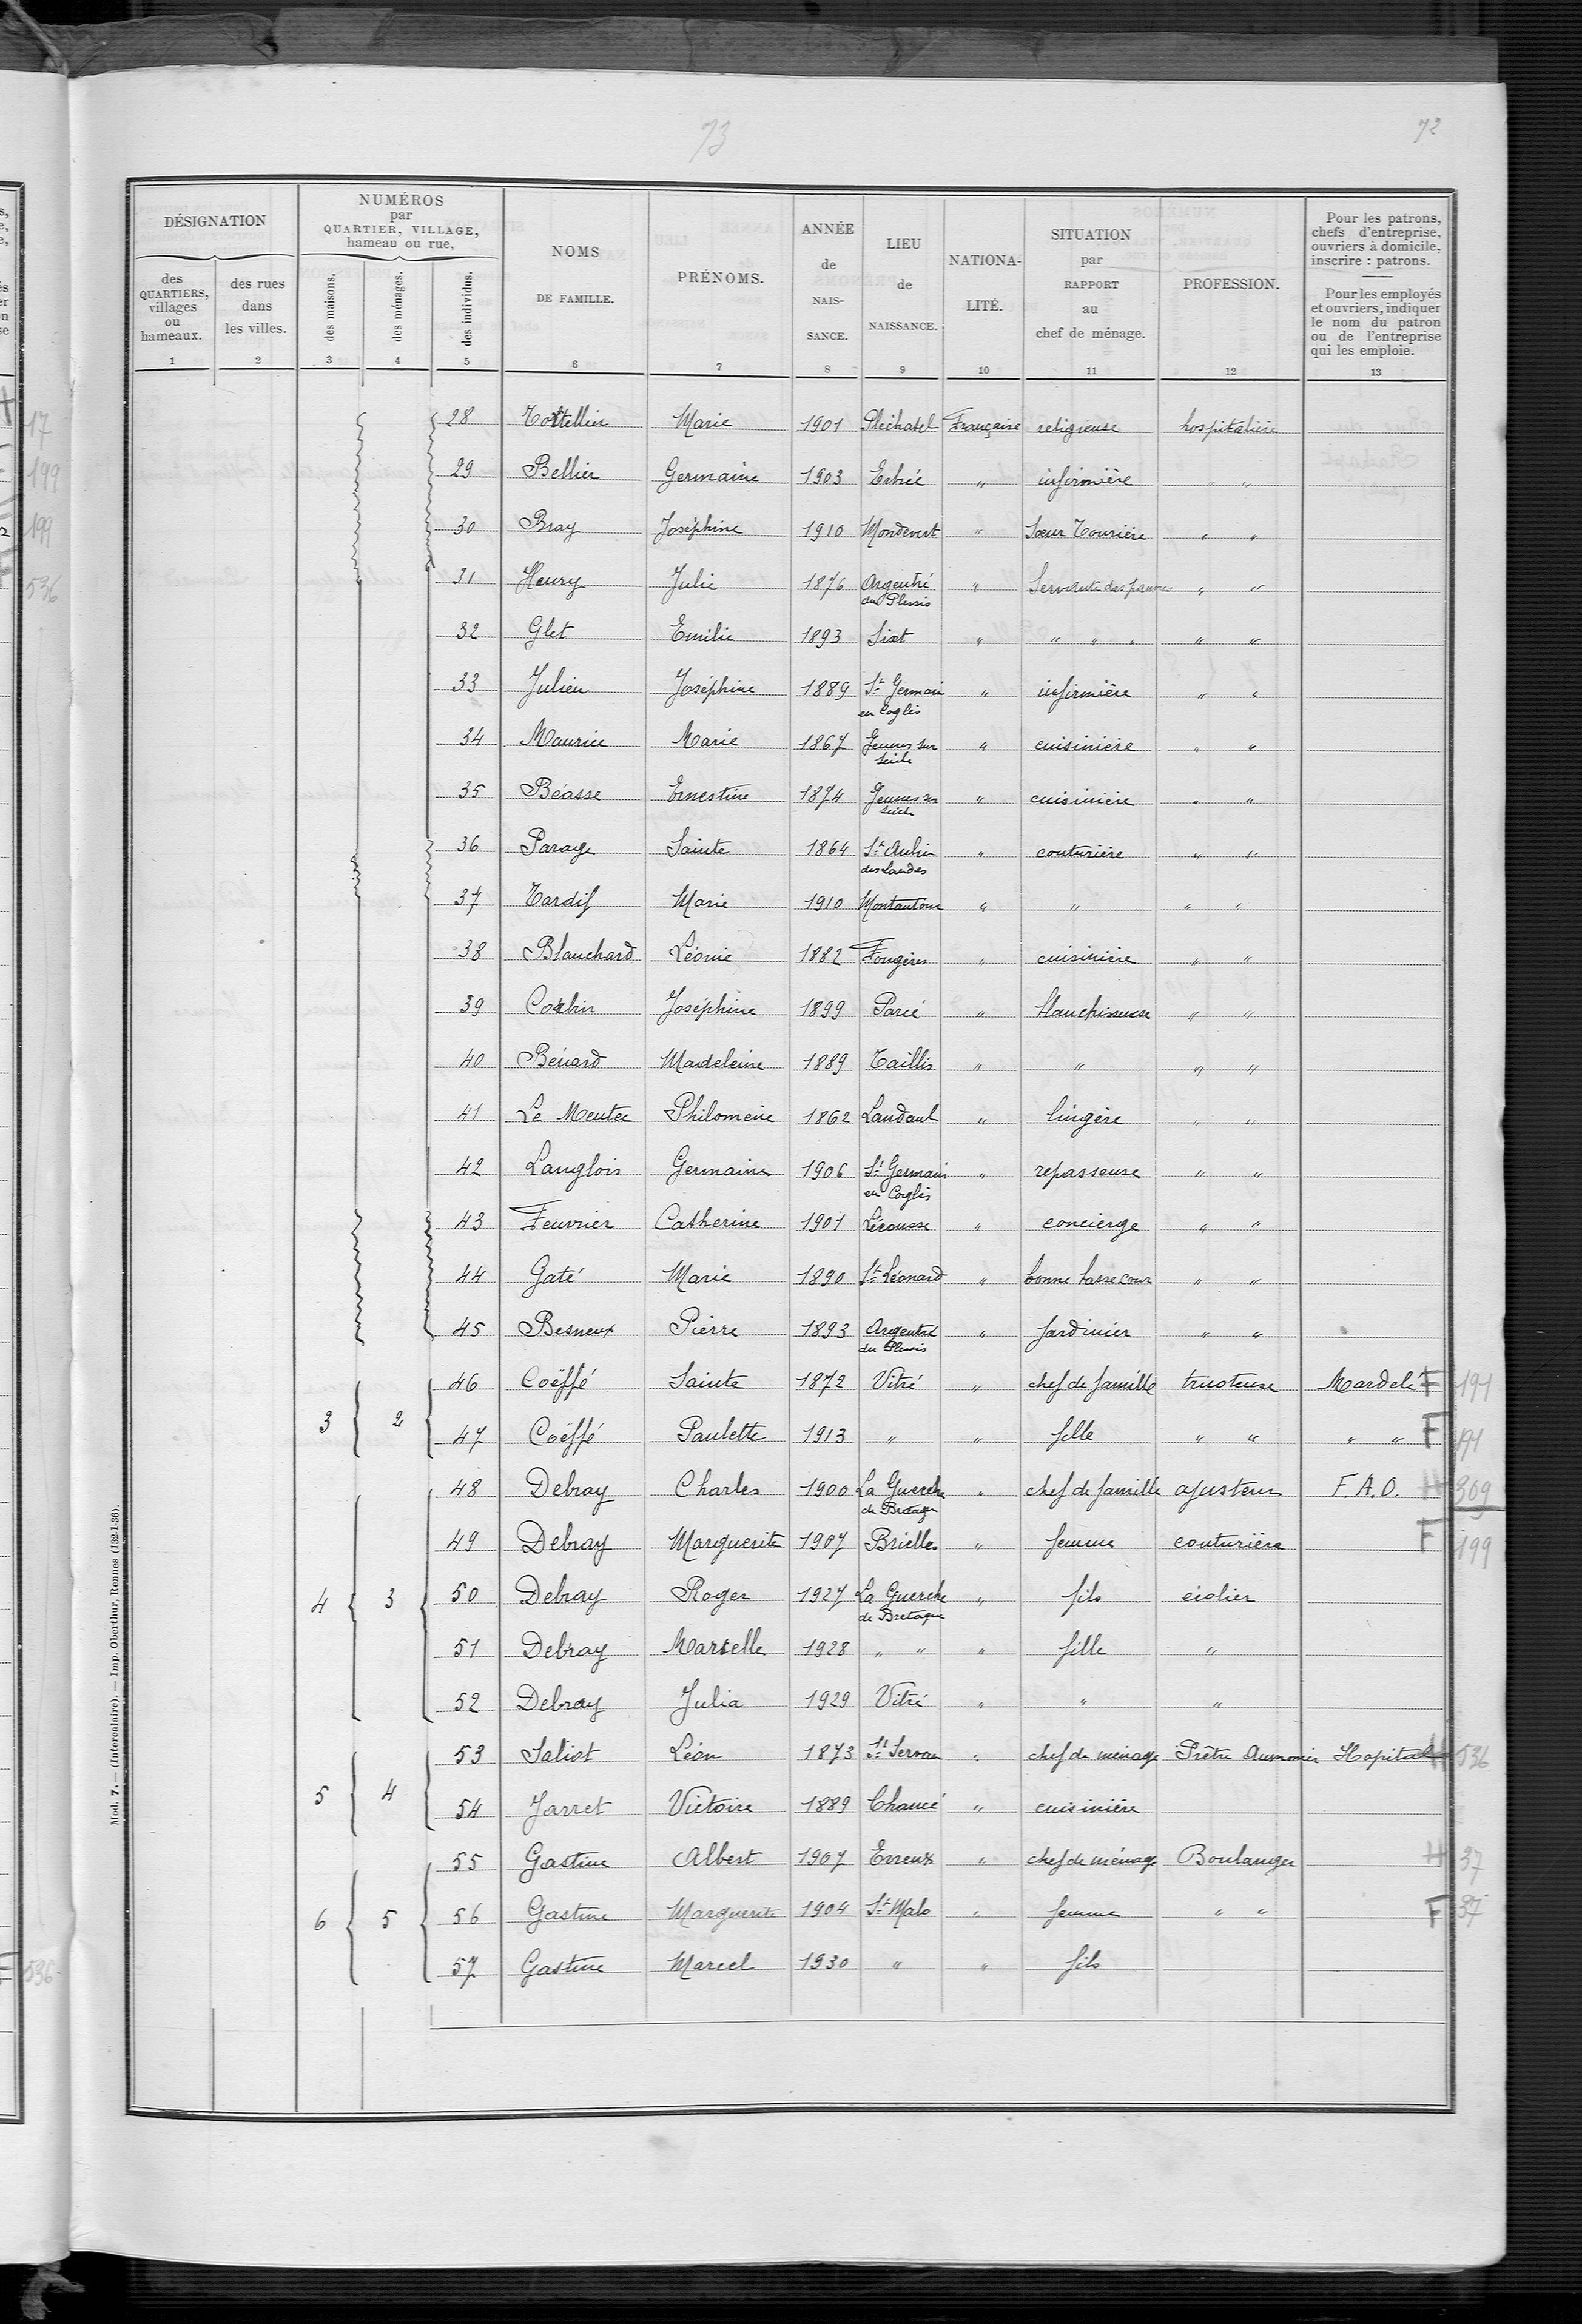 73
72
DÉSIGNATION
NUMÉROS
par
QUARTIER, VILLAGE,
hameau ou rue,
des
QUARTIERS,
villages
ou
hameaux.
des rues
dans
les villes.
des maisons.
des ménages.
des individus.
NOMS
DE FAMILLE.
PRÉNOMS.
ANNÉE
de
NAIS-
SANCE.
LIEU
de
NAISSANCE.
NATIONA-
LITÉ.
SITUATION
par
RAPPORT
au
chef de ménage.
PROFESSION.
Pour les patrons,
chefs d'entreprise,
ouvriers à domicile,
inscrire : patrons.
Pour les employés
et ouvriers, indiquer
le nom du patron
ou de l'entreprise
qui les emploie.
1 2 3 4 5 6 7 8 9 10 11 12 13
28 Marie 1901 Pléchatel Française religieuse hospitalière
29 Bellier Germaine 1903 " infirmière " "
30 Bray Joséphine 1910 Mondevert " Sœur Tourière " "
31 Henry Julie 1876 Argentré du Plessis " Servante des pauvres " "
32 Glet Emilie 1893 Sixt " " " " " "
33 Julien Joséphine 1889 St Germain en Coglès " infirmière " "
34 Maurice Marie 1867 " cuisinière " "
35 Béasse Ernestine 1874 " cuisinière " "
36 Parage Sainte 1864 St Aubin des Landes " couturière " "
37 Tardif Marie 1910 Montautour " " " "
38 Blanchard Léonie 1882 Fougères " cuisinière " "
39 Corbin Joséphine 1899 Parcé " blanchisseuse " "
40 Bénard Madeleine 1889 Taillis " " " "
41 Le Meutec Philomène 1862 Landaul " lingère " "
42 Langlois Germaine 1906 St Germain en Coglès " repasseuse " "
43 Feuvrier Catherine 1901 Lécousse " concierge " "
44 Gaté Marie 1890 St Léonard " bonne basse cour " "
45 Besneux Pierre 1893 Argentré du Plessis " Jardinier " "
46 Coëffé Sainte 1872 Vitré " chef de famille tricoteuse F 191
3 2 47 Coëffé Paulette 1913 " " fille " " " " F 191
48 Debray Charles 1900 La Guerche de Bretagne " chef de famille ajusteur F.A.O. H 309
49 Debray Marguerite 1907 Brielles " femme couturière F 199
4 3 50 Debray Roger 1927 La Guerche de Bretagne " fils écolier
51 Debray Marcelle 1928 " " " fille "
52 Debray Julia 1929 Vitré " " "
53 Saliot Léon 1873 St Servan " chef de ménage Prêtre Aumonier Hopital H 536
5 4 54 Jarret Victoire 1889 Chancé " cuisinière
55 Gastine Albert 1907 " chef de ménage Boulanger H 37
6 5 56 Gastine Marguerite 1904 St Malo " femme " " F 37
57 Gastine Marcel 1930 " " fils
Mod. 7. — (Intercalaire). — Imp. Oberthur, Rennes (132-1-36).
17
199
199
536
F 536